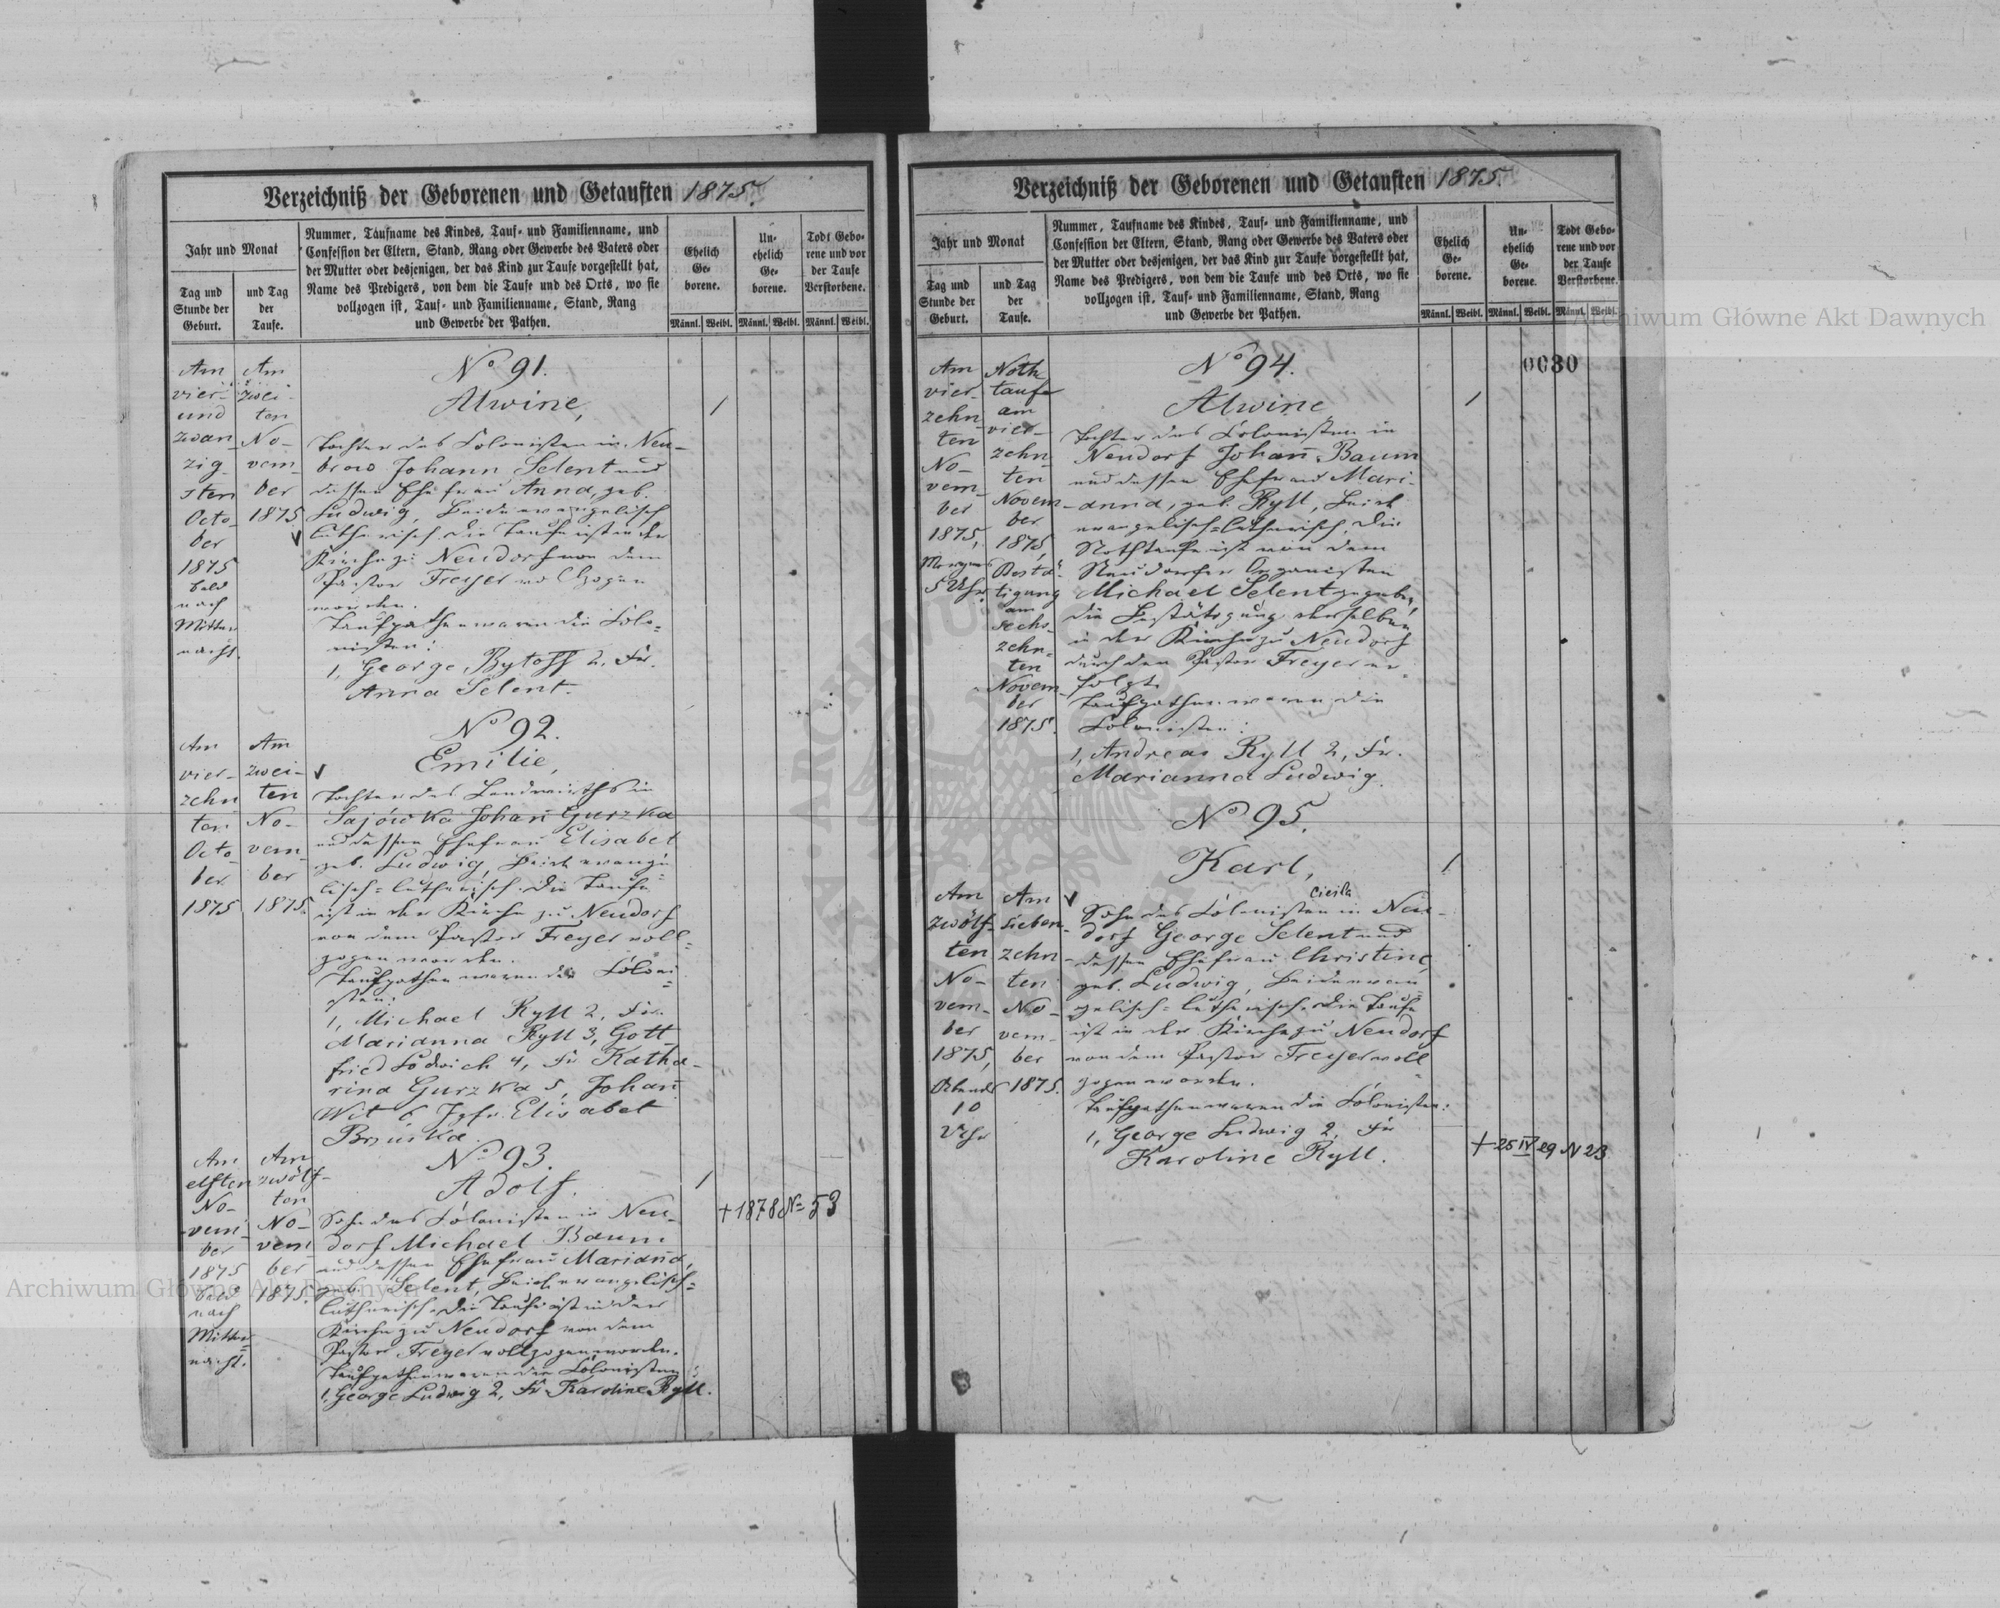 Verzeichniß der Geborenen und Getauften 1875.
Jahr und Monat
Tag und
Stunde der
Geburt.
und Tag
der
Taufe.
Nummer, Taufname des Kindes, Tauf- und Familienname, und
Confession der Eltern, Stand, Rang oder Gewerbe des Vaters oder
der Mutter oder desjenigen, der das Kind zur Taufe vorgestellt hat,
Name des Predigers, von dem die Taufe und des Orts, wo sie
vollzogen ist, Tauf- und Familienname, Stand, Rang
und Gewerbe der Pathen.
Ehelich
Ge-
borene.
Un-
ehelich
Ge-
borene.
Todt Gebo-
rene und vor
der Taufe
Verstorbene.
Männl. Weibl. Männl. Weibl. Männl. Weibl.
Am
vier-
und
zwan-
zig-
sten
Octo-
ber
1875
bald
nach
Mitter-
nacht.
Am
zwei-
ten
No-
vem-
ber
1875
No 91.
Alwine,
Tochter des Colonisten in Neu-
brow Johann Selent und
dessen Ehefrau Anna, geb.
Ludwig, Beide evangelisch
lutherisch. Die Taufe ist in der
Kirche zu Neudorf von dem
Pastor Freyer vollzogen
worden.
Taufpathen waren die Colo-
nisten:
1, George Rytoff 2, Fr.
Anna Selent.
Am
vier-
zehn
ten
Octo-
ber
1875
Am
zwei-
ten
No-
vem-
ber
1875.
No 92.
Emilie,
Tochter des Landwirths in
Sajówka Johañ Gurzka
und dessen Ehefrau Elisabet
geb. Ludwig, Beide evange-
lisch-lutherisch. Die Taufe
ist in der Kirche zu Neudorf
von dem Pastor Freyer voll-
zogen worden.
Taufpathen waren die Coloni-
sten:
1, Michael Ryll 2, Fr.
Marianna Ryll 3, Gott-
fried Lodwich 4, Fr. Katha-
rina Gurzka 5, Johañ
Wit 6 Jgfr. Elisabet
Am
elften
No-
vem-
ber
1875
bald
nach
Mitter-
nacht.
Am
zwölf-
ten
No-
vem-
ber
1875.
No 93.
Adolf.
Sohn des Colonisten in Neu-
dorf Michael Baum
und dessen Ehefrau Mariaña,
geb. Selent, Beide evangelisch-
lutherisch. Die Taufe ist in der
Kirche zu Neudorf von dem
Pastor Freyer vollzogen worden.
Taufpathen waren die Colonisten:
1, George Ludwig 2, Fr. Karoline Ryll.
+ 1878 No 53
Verzeichniß der Geborenen und Getauften 1875.
Jahr und Monat
Tag und
Stunde der
Geburt.
und Tag
der
Taufe.
Nummer, Taufname des Kindes, Tauf- und Familienname, und
Confession der Eltern, Stand, Rang oder Gewerbe des Vaters oder
der Mutter oder desjenigen, der das Kind zur Taufe vorgestellt hat,
Name des Predigers, von dem die Taufe und des Orts, wo sie
vollzogen ist, Tauf- und Familienname, Stand, Rang
und Gewerbe der Pathen.
Ehelich
Ge-
borene.
Un-
ehelich
Ge-
borene.
Todt Gebo-
rene und vor
der Taufe
Verstorbene.
Männl. Weibl. Männl. Weibl. Männl. Weibl.
0030
Am
vier-
zehn-
ten
No-
vem-
ber
1875,
Morgens
5 Uhr.
Noth
taufe
am
vier-
zehn-
ten
Novem-
ber
1875,
Bestä-
tigung
am
sechs-
zehn-
ten
Novem-
ber
1875.
No 94.
Alwine
Tochter des Colonisten in
Neudorf Johañ Baum
und dessen Ehefrau Mari-
anna, geb. Ryll, Beide
evangelisch-lutherisch. Die
Nothtaufe ist von dem
Neudorfer Organisten
Michael Selent gegeben,
die Bestätigung derselben
in der Kirche zu Neudorf
durch den Pastor Freyer er-
folgt.
Taufpathen waren die
Colonisten:
1, Andreas Ryll 2, Fr.
Marianna Ludwig.
Am
zwölf-
ten
No-
vem-
ber
1875,
Abends
10
Uhr
Am
sieben-
zehn-
ten
No-
vem-
ber
1875.
No 95.
Karl,
Sohn des Colonisten in Neu-
dorf George Selent und
dessen Ehefrau Christine,
geb. Ludwig, Beide evan-
gelisch-lutherisch. Die Taufe
ist in der Kirche zu Neudorf
von dem Pastor Freyer voll-
zogen worden.
Taufpathen waren die Colonisten:
1, George Ludwig 2, Fr
Karoline Ryll.
+ 25 IV 29 N 23
Archiwum Główne Akt Dawnych
Archiwum Główne Akt Dawnych